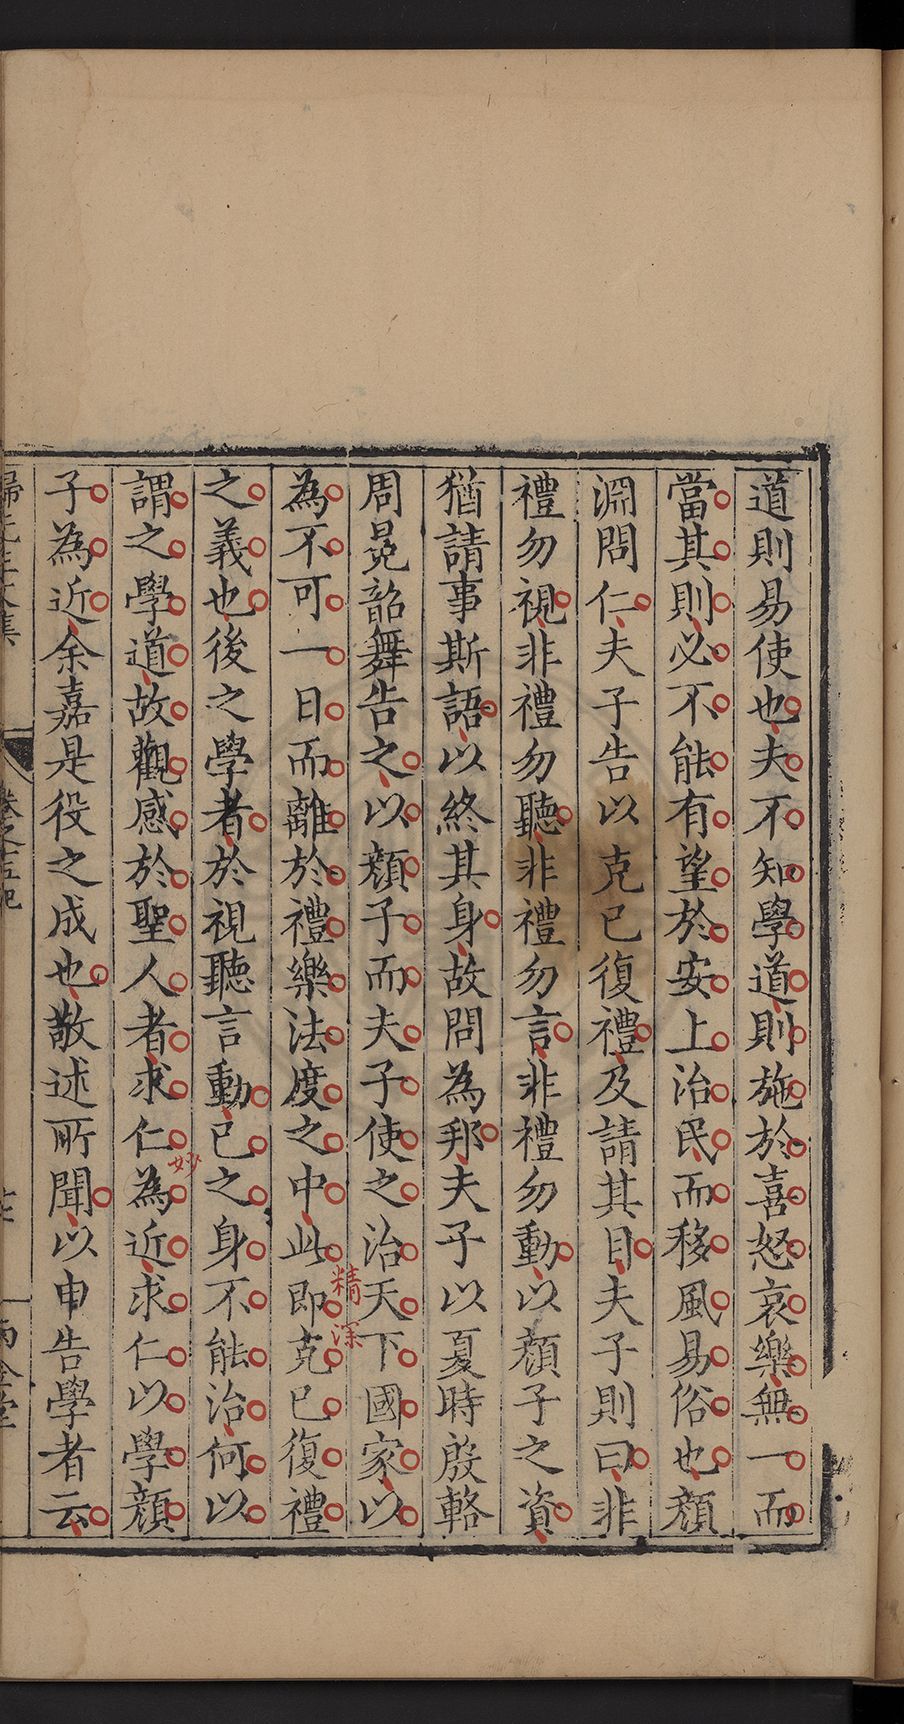 道則易使也夫不知學道則施於喜怒哀樂無一而
當其則必不能有望於安上治民而移風易俗也顏
淵問仁夫子告以克已復禮及請其目夫子則曰非
禮勿視非禮勿聽非禮勿言非禮勿動以顏子之資
猶請事斯語以終其身故問為邦夫子以夏時殷輅
周冕韶舞告之以顏子而夫子使之治天下國家以
為不可一日而離於禮樂法度之中此即克已復禮
精深
之義也後之學者於視聽言動已之身不能治何以
謂之學道故觀感於聖人者求仁為近求仁以學顏
妙
子為近余嘉是役之成也敬述所聞以申告學者云
卷之五記